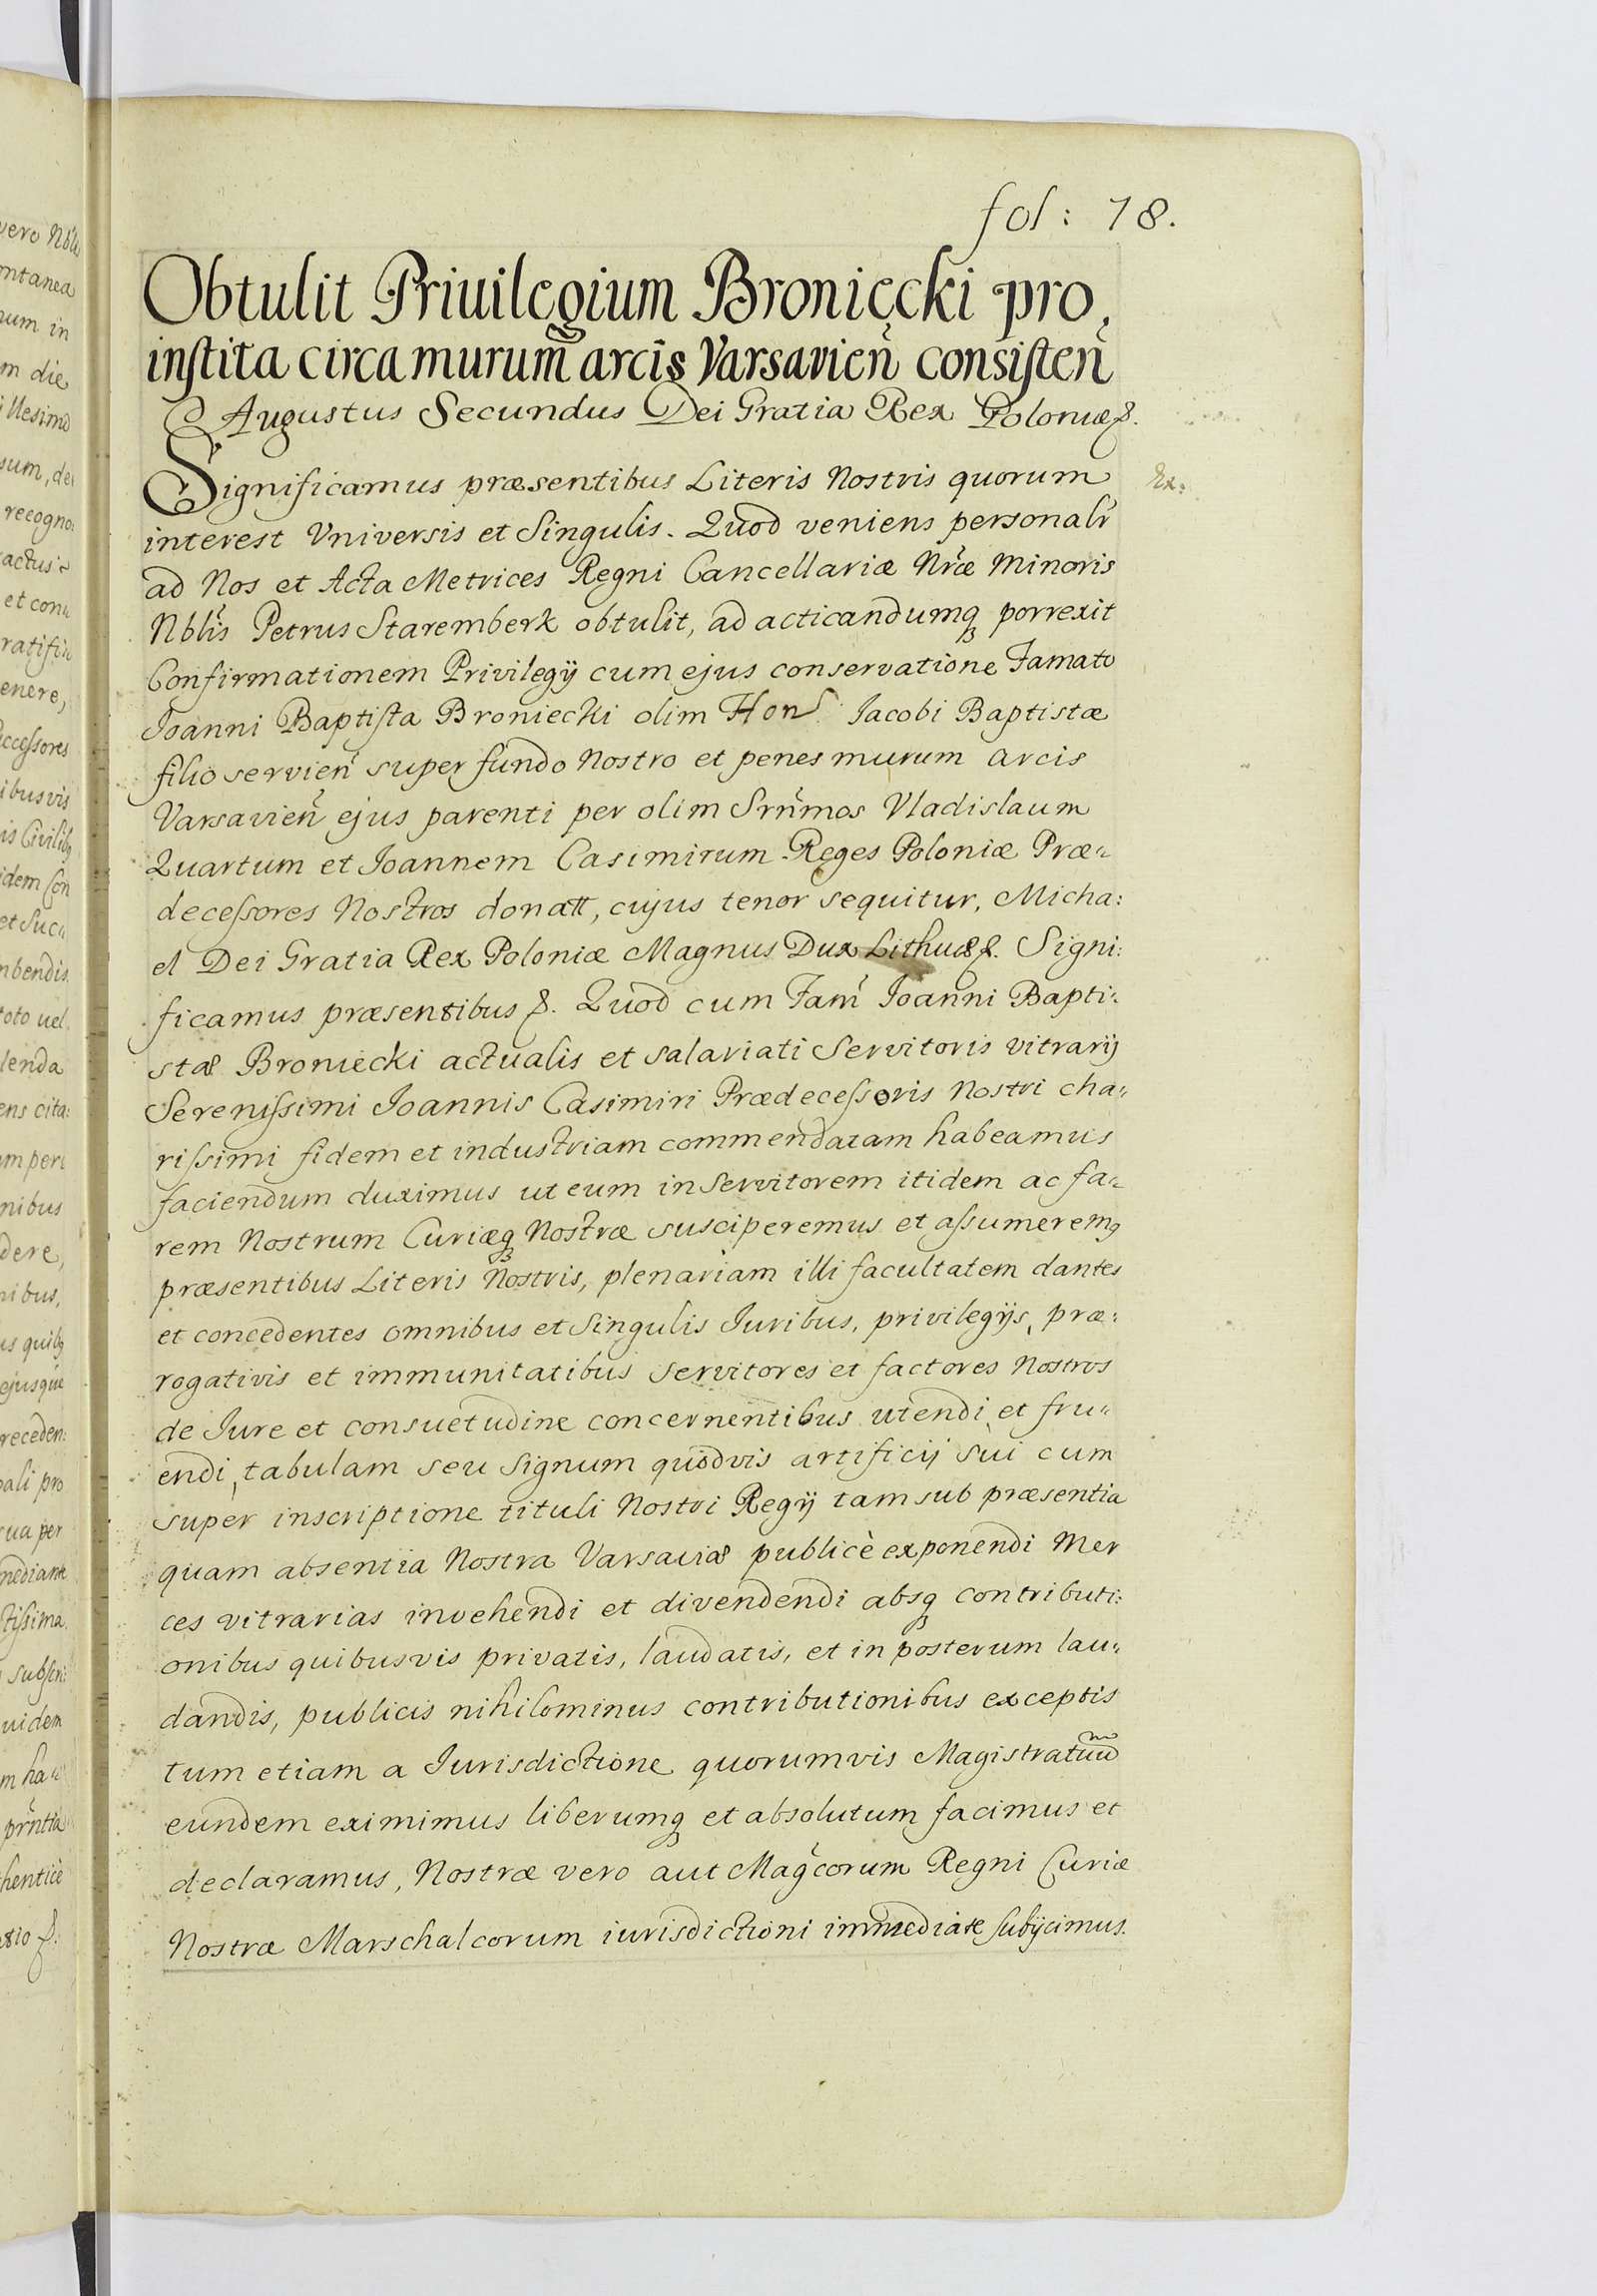 fol: 18.
Obtulit Priuilegium Bronięcki pro
instita circa murum arcis Varsavien̄ consisten̄
Augustus Secundus Dei Gratia Rex Poloniæ &.
Significamus præsentibus Literis Nostris quorum
Ex:
interest Vniversis et Singulis. Quod veniens personalr̄
ad Nos et Acta Metrices Regni Cancellariæ Nr̄æ Minoris
Nblīs Petrus Staremberk obtulit, ad acticandumq̨ porrexit
Confirmationem Privilegij cum ejus conservatione Famato
Joanni Baptista Broniecki olim Hon. Jacobi Baptistæ
filio servien̄ super fundo Nostro et penes murum arcis
Varsavien̄ ejus parenti per olim Srn̄mos Vladislaum
Quartum et Joannem Casimirum Reges Poloniæ Præ-
decessores Nostros donatt, cujus tenor sequitur, Micha:
el Dei Gratia Rex Poloniæ Magnus Dux Lithuæ &. Signi:
ficamus præsentibus &. Quod cum Fam̄ Joanni Bapti-
stæ Broniecki actualis et salariati Servitoris vitrarij
Serenissimi Joannis Casimiri Prædecessoris Nostri cha-
rissimi fidem et industriam commendatam habeamus
faciendum duximus ut eum in Servitorem itidem ac fa-
rem Nostrum Curiæq̨ Nostræ susciperemus et assumeremq̨
præsentibus Literis Nostris, plenariam illi facultatem dantes
et concedentes omnibus et Singulis Juribus, privilegijs, præ:
rogativis et immunitatibus servitores et factores Nostros
de Jure et consuetudine concernentibus utendi et fru-
endi, tabulam seu Signum quodvis artificij sui cum
super inscriptione tituli Nostri Regij tam sub præsentia
quam absentia Nostra Varsaviæ publicè exponendi Mer
ces vitrarias invehendi et divendendi absq̨ contributi:
onibus quibusvis privatis, laudatis, et in posterum lau-
dandis, publicis nihilominus contributionibus exceptis
tum etiam a Jurisdictione quorumvis Magistratuum
eundem eximimus liberumq̨ et absolutum facimus et
declaramus, Nostræ vero aut Mag̃corum Regni Curiæ
Nostræ Marschalcorum iurisdictioni immediate subijcimus.